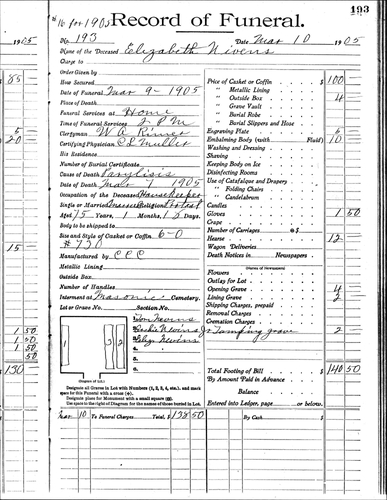 193
# 16 for 1905
Record of Funeral.
1905
No. 193
Date Mar 10 1905
Name of the Deceased Elizabeth Nivens
Charge to
Order Given by
How Secured
Date of Funeral Mar 9 - 1905
Place of Death
Funeral Services at Home
Time of Services 2 P M
Clergyman W A
Certifying Physician C E Muller
His Residence
Number of Burial Certificate
Cause of Death Paralisis
Date of Death Mar 7 1905
Occupation of the Deceased House Keeper
Single or Married Religion
Aged 75 Years, 1 Months, Days
Body to be shipped to
Size and Style of Casket or Coffin 6-0
# 730
Manufactured by C C C
Metallic Lining
Outside Box
Number of Handles
Interment at Masonic Cemetery.
Lot or Grave No. Section No.
1. Nevins
2. Nivins Jr
3. Nevins
4.
5.
6.
(Diagram of Lot.)
Designate all Graves in Lot with Numbers (1, 2, 3, 4, etc.) and mark
space for this Funeral with a cross (+).
Designate place for Monument with a small square
Use space to the right of Diagram for the names of those buried in Lot.
Mar 10 To Funeral Charges Total, $ 138 50
Price of Casket or Coffin $ 100
" Metallic Lining
" Outside Box 4
" Grave Vault
" Burial Robe
" Burial Slippers and Hose
Engraving Plate
Embalming Body (with Fluid) 10
Washing and Dressing
Shaving
Keeping Body on Ice
Disinfecting Rooms
Use of Catafalque and Drapery
" Folding Chairs
" Candelabrum
Candles
Gloves 1 50
Crape
Number of Carriages @ $
Hearse 12
Wagon Deliveries
Death Notices in Newspapers
(Names of Newspapers)
Flowers
Outlay for Lot
Opening Grave 4
Lining Grave 2
Shipping Charges, prepaid
Removal Charges
Cremation Charges
Tamping grave 2
Total Footing of Bill $ 140 50
By Amount Paid in Advance
Balance
Entered into Ledger, page or below.
By Cash $
85
5
20
15
1 50
1 50
1 50
50
130